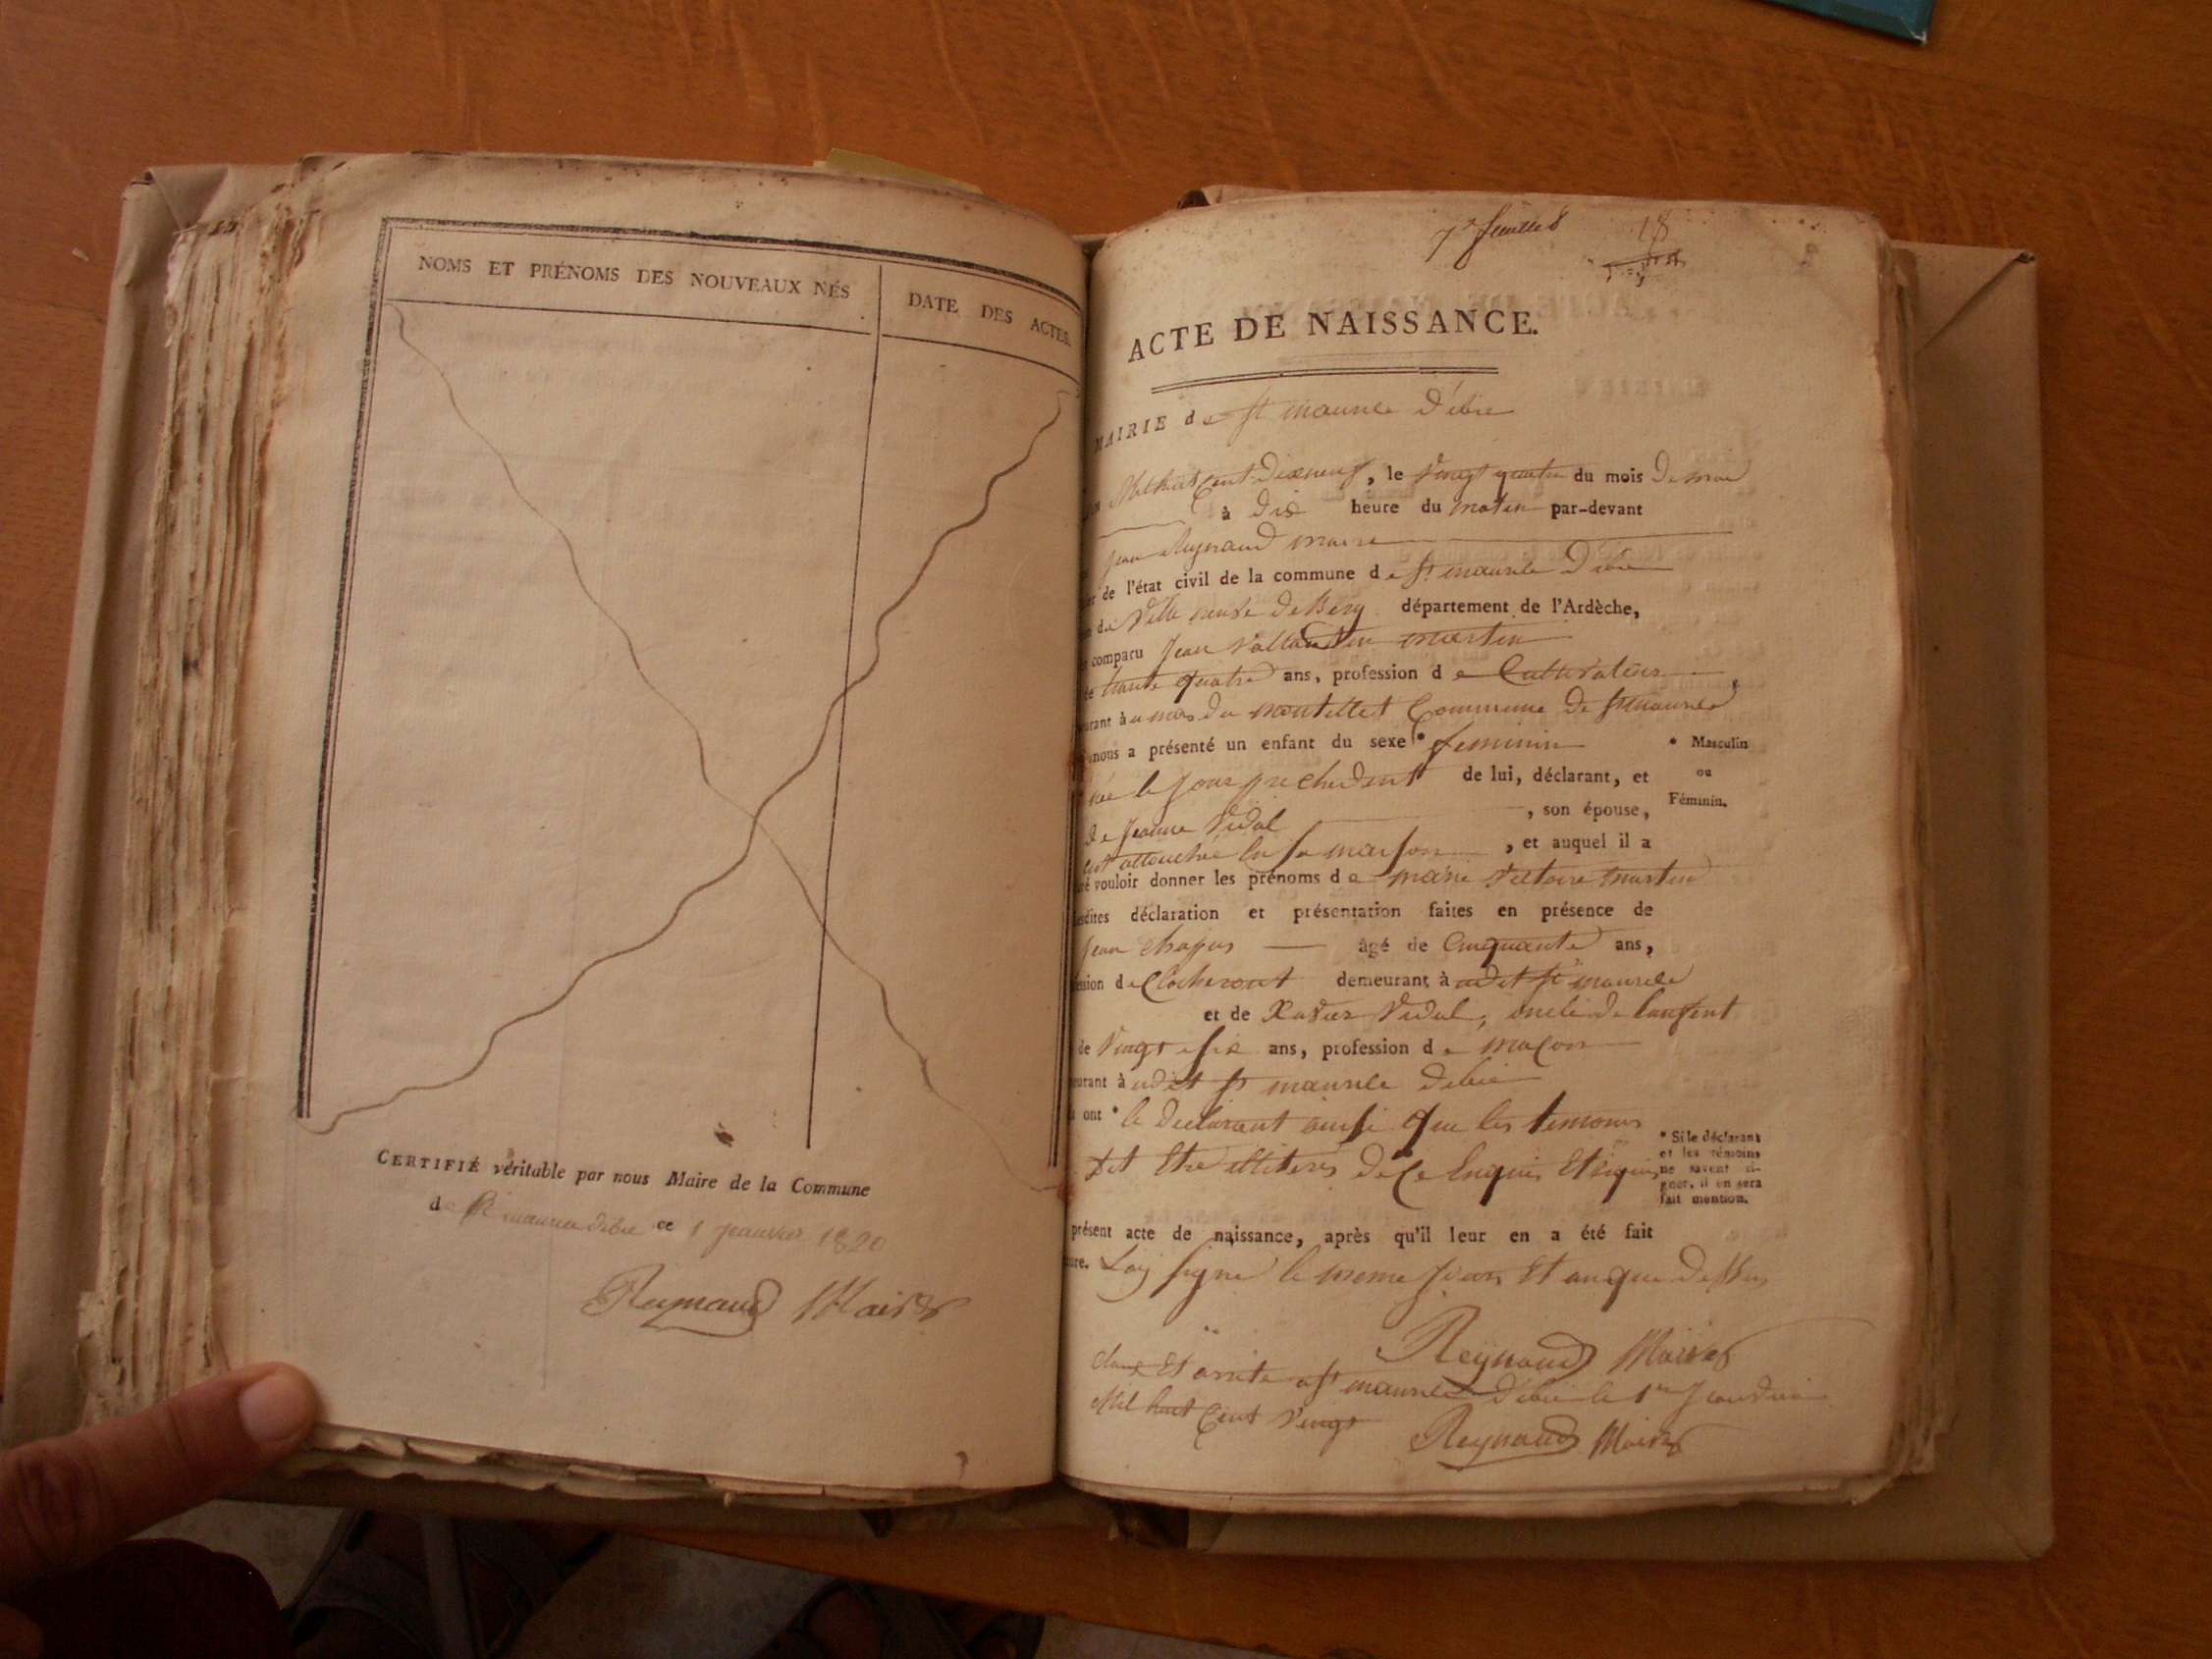 NOMS ET PRÉNOMS DES NOUVEAUX NÉS
DATE DES ACTES.
CERTIFIÉ véritable par nous Maire de la Commune
de St maurice dibie ce 1 janvier 1820
Reynaud Maire
7e feuillet
18
ACTE DE NAISSANCE.
MAIRIE de St maurice d'ibie
an Mil huit Cent Dixneuf, le vingt quatre du mois De mai
à Dix heure du matin par-devant
Jean Reynaud maire
de l'état civil de la commune de St maurice Dibie
de Ville neuve De Berg département de l'Ardèche,
comparu Jean Vallantin martin
trante quatre ans, profession de Cultivateur
urant à u mas du montellet Commune de St maurice
nous a présenté un enfant du sexe * feminin
née le jour prechedent de lui, déclarant, et
de Jeanne Vidal , son épouse,
en sa maison , et auquel il a
ré vouloir donner les prénoms de marie victoire martin
esdites déclaration et présentation faites en présence de
Jean Chapus âgé de Cinquante ans,
ession de demeurant à udit St maurice
et de Xavier Vidal, oncle de lanfent
de Vingt six ans, profession de maçon
eurant à udit St maurice dibie
ont * le declarant ainsi que les temoins
dit Etre illiterés De Ce Enquis Et requis
présent acte de naissance, après qu'il leur en a été fait
ure. Lay signé le meme jour Et an que Dessus
Reynaud Maire
Clause Et arreté a St maurice d'ibie le 1er Janvier
Mil huit Cent Vingt
Reynaud Maire
* Masculin
ou
Féminin.
* Si le déclarant
et les témoins
ne savent si-
gner, il en sera
fait mention.